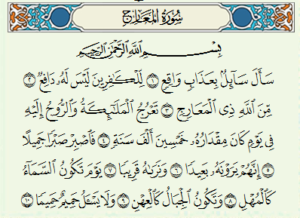 سُورَةُ الْمَعَارِجِ
بِسْمِ اللَّهِ الرَّحْمَٰنِ الرَّحِيمِ
سَأَلَ سَائِلٌ بِعَذَابٍ وَاقِعٍ ١ لِلْكَافِرِينَ لَيْسَ لَهُ دَافِعٌ ٢
مِنَ اللَّهِ ذِي الْمَعَارِجِ ٣ تَعْرُجُ الْمَلَائِكَةُ وَالرُّوحُ إِلَيْهِ
فِي يَوْمٍ كَانَ مِقْدَارُهُ خَمْسِينَ أَلْفَ سَنَةٍ ٤ فَاصْبِرْ صَبْرًا جَمِيلًا
٥ إِنَّهُمْ يَرَوْنَهُ بَعِيدًا ٦ وَنَرَاهُ قَرِيبًا ٧ يَوْمَ تَكُونُ السَّمَاءُ
كَالْمُهْلِ ٨ وَتَكُونُ الْجِبَالُ كَالْعِهْنِ ٩ وَلَا يَسْأَلُ حَمِيمٌ حَمِيمًا ١٠